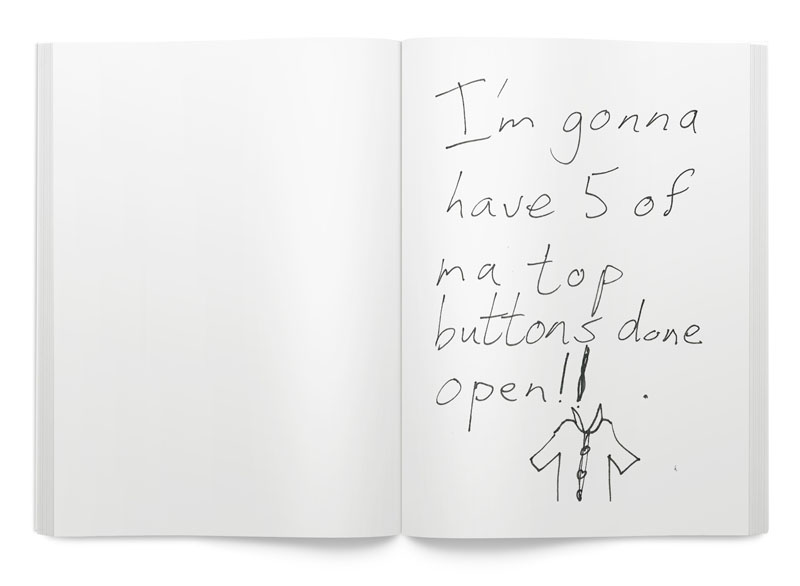 I'm gonna
have 5 of
ma top
buttons done
open!!